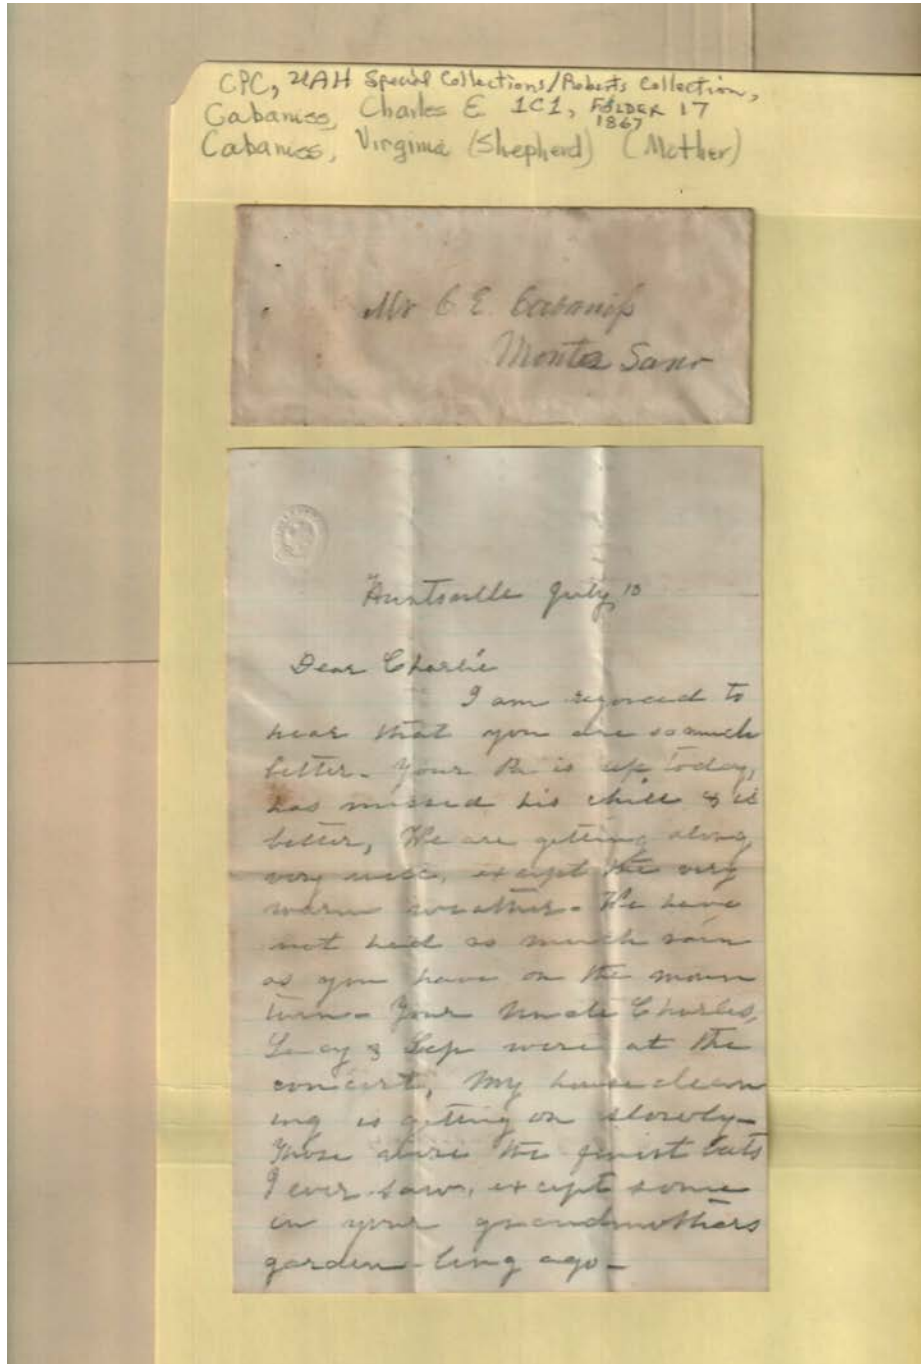 CPC, UAH Special Collections/Roberts Collection,
Cabaniss, Charles E 1C1, FOLDER 17
1867
Cabaniss, Virginia (Shepherd) (Mother)
Mr C E Cabaniss
Monte Sano
Huntsville July 10
Dear Charlie
I am rejoiced to
hear that you are so much
better. Your Pa is up today,
has missed his chill & is
better, We are getting along
very well, except the very
warm weather. We have
not had as much rain
as you have on the moun
tain. Your Uncle Charles,
Lucy & Sep were at the
concert, My house clean
ing is getting on slowly—
Those were the finest
I ever saw, except some
in your grandmothers
garden long ago—